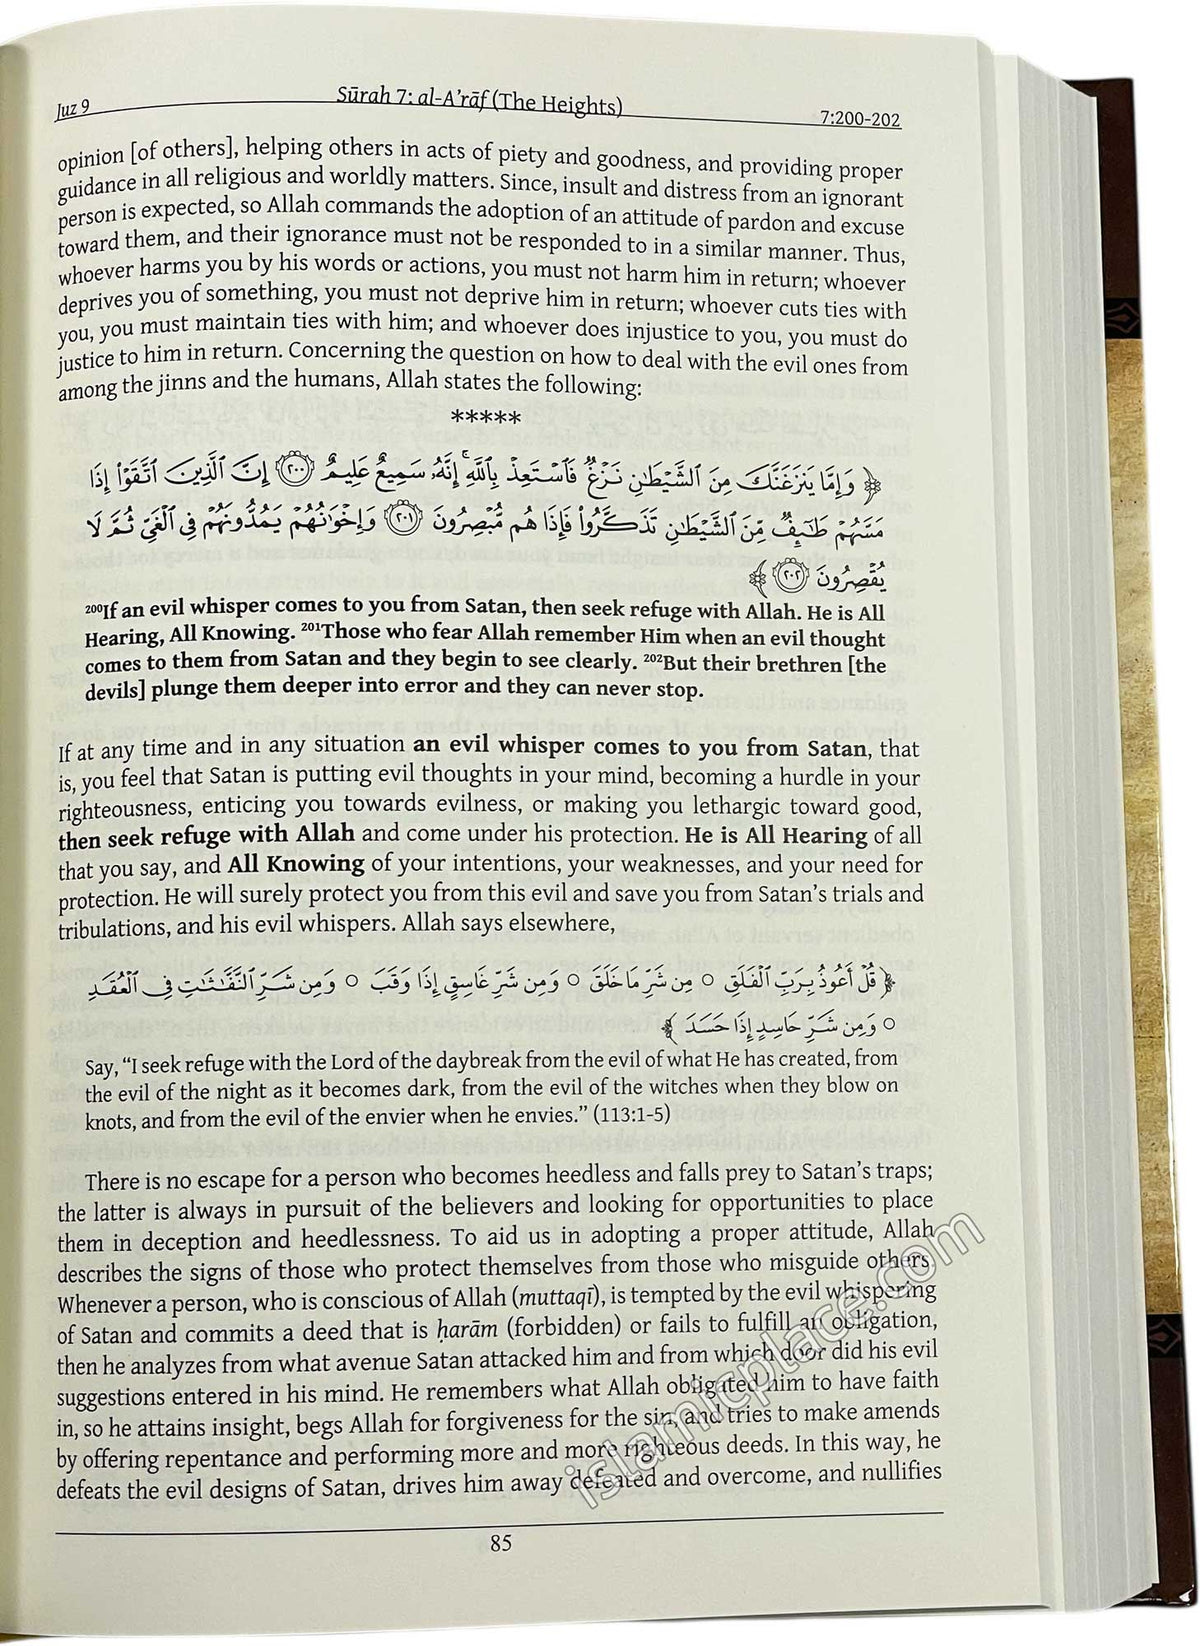 Juz 9
Sūrah 7: al-A'rāf (The Heights)
7:200-202
opinion [of others], helping others in acts of piety and goodness, and providing proper
guidance in all religious and worldly matters. Since, insult and distress from an ignorant
person is expected, so Allah commands the adoption of an attitude of pardon and excuse
toward them, and their ignorance must not be responded to in a similar manner. Thus,
whoever harms you by his words or actions, you must not harm him in return; whoever
deprives you of something, you must not deprive him in return; whoever cuts ties with
you, you must maintain ties with him; and whoever does injustice to you, you must do
justice to him in return. Concerning the question on how to deal with the evil ones from
among the jinns and the humans, Allah states the following:
*****
﴿ وَإِمَّا يَنزَغَنَّكَ مِنَ ٱلشَّيْطَٰنِ نَزْغٌ فَٱسْتَعِذْ بِٱللَّهِ ۚ إِنَّهُۥ سَمِيعٌ عَلِيمٌ ٢٠٠ إِنَّ ٱلَّذِينَ ٱتَّقَوْا۟ إِذَا
مَسَّهُمْ طَٰٓئِفٌ مِّنَ ٱلشَّيْطَٰنِ تَذَكَّرُوا۟ فَإِذَا هُم مُّبْصِرُونَ ٢٠١ وَإِخْوَٰنُهُمْ يَمُدُّونَهُمْ فِى ٱلْغَىِّ ثُمَّ لَا
يُقْصِرُونَ ٢٠٢ ﴾
²⁰⁰If an evil whisper comes to you from Satan, then seek refuge with Allah. He is All
Hearing, All Knowing. ²⁰¹Those who fear Allah remember Him when an evil thought
comes to them from Satan and they begin to see clearly. ²⁰²But their brethren [the
devils] plunge them deeper into error and they can never stop.
If at any time and in any situation an evil whisper comes to you from Satan, that
is, you feel that Satan is putting evil thoughts in your mind, becoming a hurdle in your
righteousness, enticing you towards evilness, or making you lethargic toward good,
then seek refuge with Allah and come under his protection. He is All Hearing of all
that you say, and All Knowing of your intentions, your weaknesses, and your need for
protection. He will surely protect you from this evil and save you from Satan's trials and
tribulations, and his evil whispers. Allah says elsewhere,
﴿ قُلْ أَعُوذُ بِرَبِّ ٱلْفَلَقِ ○ مِن شَرِّ مَا خَلَقَ ○ وَمِن شَرِّ غَاسِقٍ إِذَا وَقَبَ ○ وَمِن شَرِّ ٱلنَّفَّٰثَٰتِ فِى ٱلْعُقَدِ
○ وَمِن شَرِّ حَاسِدٍ إِذَا حَسَدَ ﴾
Say, "I seek refuge with the Lord of the daybreak from the evil of what He has created, from
the evil of the night as it becomes dark, from the evil of the witches when they blow on
knots, and from the evil of the envier when he envies." (113:1-5)
There is no escape for a person who becomes heedless and falls prey to Satan's traps;
the latter is always in pursuit of the believers and looking for opportunities to place
them in deception and heedlessness. To aid us in adopting a proper attitude, Allah
describes the signs of those who protect themselves from those who misguide others.
Whenever a person, who is conscious of Allah (muttaqī), is tempted by the evil whispering
of Satan and commits a deed that is ḥarām (forbidden) or fails to fulfill an obligation,
then he analyzes from what avenue Satan attacked him and from which door did his evil
suggestions entered in his mind. He remembers what Allah obligated him to have faith
in, so he attains insight, begs Allah for forgiveness for the sin, and tries to make amends
by offering repentance and performing more and more righteous deeds. In this way, he
defeats the evil designs of Satan, drives him away defeated and overcome, and nullifies
islamicplace.com
85